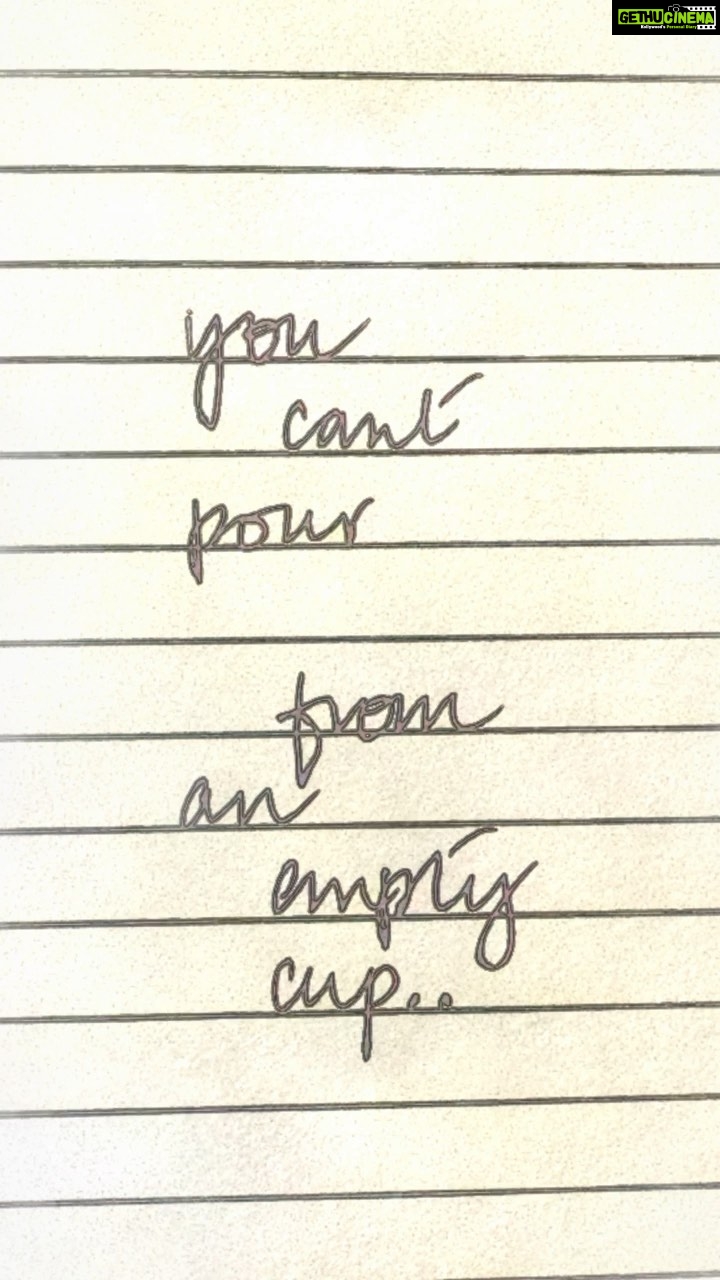 GETHUCINEMA
Kollywood's Personal Diary
you
can't
pour
from
an
empty
cup..